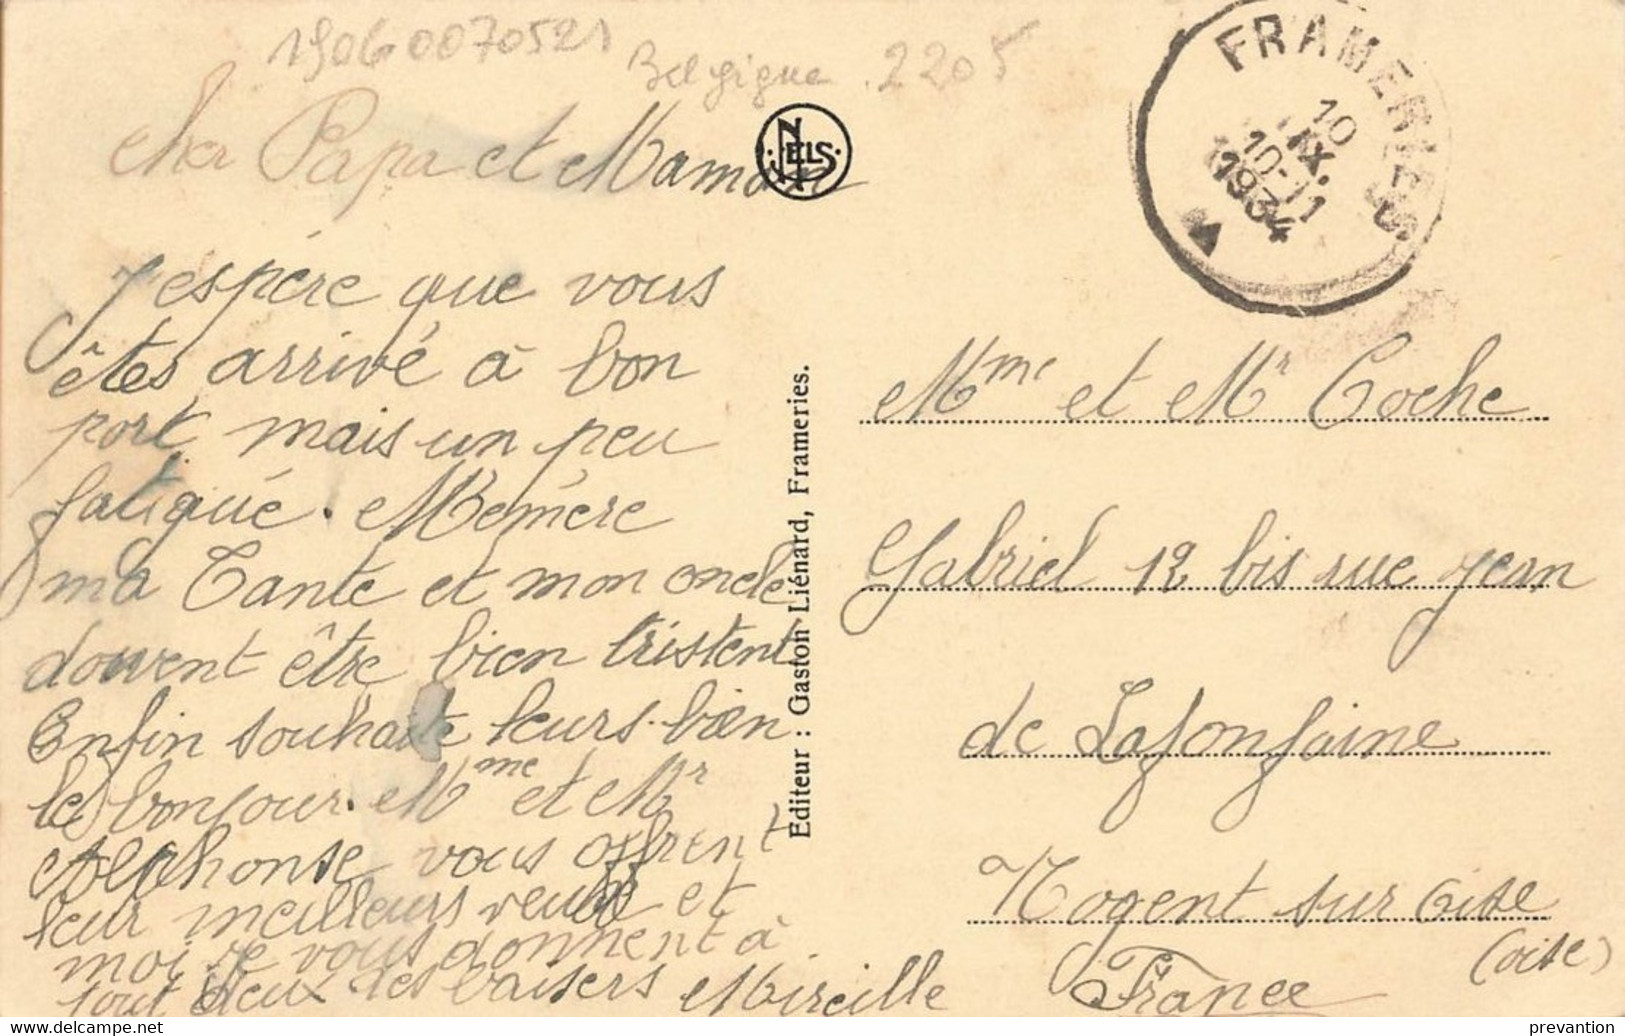 19060070521
Belgique 2205
FRAMERIES
10
IX.
10-11
1934
NELS
cher Papa et Maman
J'espère que vous
êtes arrivé à bon
port mais un peu
fatigué. Mémère
ma Tante et mon oncle
doivent être bien tristent
Enfin souhaite leurs bien
le bonjour. Mme et Mr
Alphonse vous offrent
leur meilleurs veux et
moi je vous donnent à
tout deux des baisers Mireille
Editeur : Gaston Liénard, Frameries.
Mme et Mr Coche
Gabriel 12 bis rue Jean
de Lafonfaine
Nogent sur Oise
(oise)
France
prevantion
www.delcampe.net